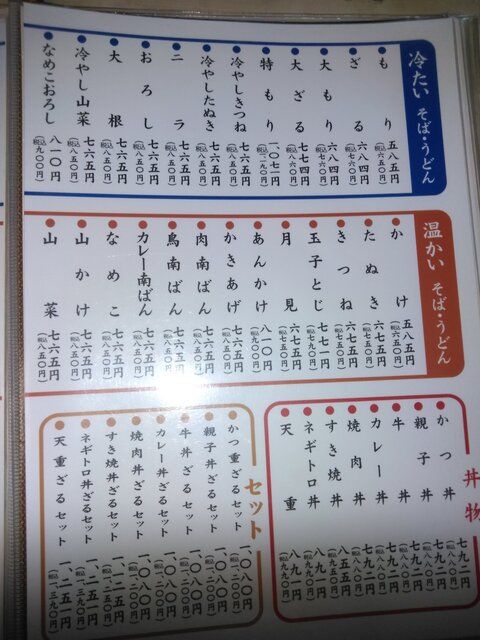 冷たい そば・うどん
もり 五八五円 (税込六五〇円)
ざる 六八四円 (税込七六〇円)
大もり 六八四円 (税込七六〇円)
大ざる 七七四円 (税込八六〇円)
特もり 一、〇七一円
冷やしきつね 七六五円 (税込八五〇円)
冷やしたぬき 七六五円 (税込八五〇円)
ニラ 七六五円 (税込八五〇円)
おろし 七六五円 (税込八五〇円)
大根 七六五円 (税込八五〇円)
冷やし山菜 七六五円 (税込八五〇円)
なめこおろし 八一〇円 (税込九〇〇円)
温かい そば・うどん
かけ 五八五円 (税込六五〇円)
たぬき 六七五円 (税込七五〇円)
きつね 六七五円 (税込七五〇円)
玉子とじ 七七一円 (税込七九〇円)
月見 六七五円 (税込七五〇円)
あんかけ 八一〇円 (税込九〇〇円)
かきあげ 七六五円 (税込八五〇円)
肉南ばん 七六五円 (税込八五〇円)
鳥南ばん 七六五円 (税込八五〇円)
カレー南ばん 七六五円 (税込八五〇円)
なめこ 七六五円 (税込八五〇円)
山かけ 七六五円 (税込八五〇円)
山菜 七六五円 (税込八五〇円)
丼物
かつ丼 七九二円
親子丼 七九二円
牛丼 七九二円
カレー丼 七九二円
焼肉丼 七九二円
すき焼丼 八五五円
ネギトロ丼 八九一円
天重 八九一円 (税込九九〇円)
セット
かつ重ざるセット 一、〇八〇円 (税込一、二〇〇円)
親子丼ざるセット 一、〇八〇円 (税込一、二〇〇円)
牛丼ざるセット 一、〇八〇円 (税込一、二〇〇円)
カレー丼ざるセット 一、〇八〇円 (税込一、二〇〇円)
焼肉丼ざるセット 一、〇八〇円 (税込一、二〇〇円)
すき焼丼ざるセット 一、一二五円 (税込一、二五〇円)
ネギトロ丼ざるセット 一、二五一円 (税込一、三九〇円)
天重ざるセット 一、二五一円 (税込一、三九〇円)